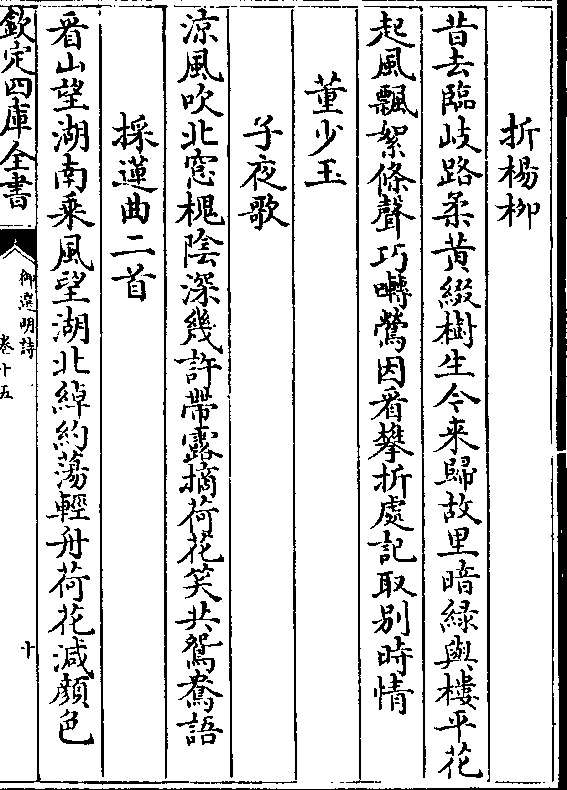 折楊柳
昔去臨岐路柔黃綴樹生今来歸故里暗緑與樓平花
起風飄絮條聲巧囀鶯因看攀折處記取别時情
董少玉
子夜歌
涼風吹北窓槐陰深幾許帶露摘荷花笑共鴛鴦語
採蓮曲二首
看山望湖南乘風望湖北綽約蕩輕舟荷花減顔色
欽定四庫全書
御選明詩
卷十五
十